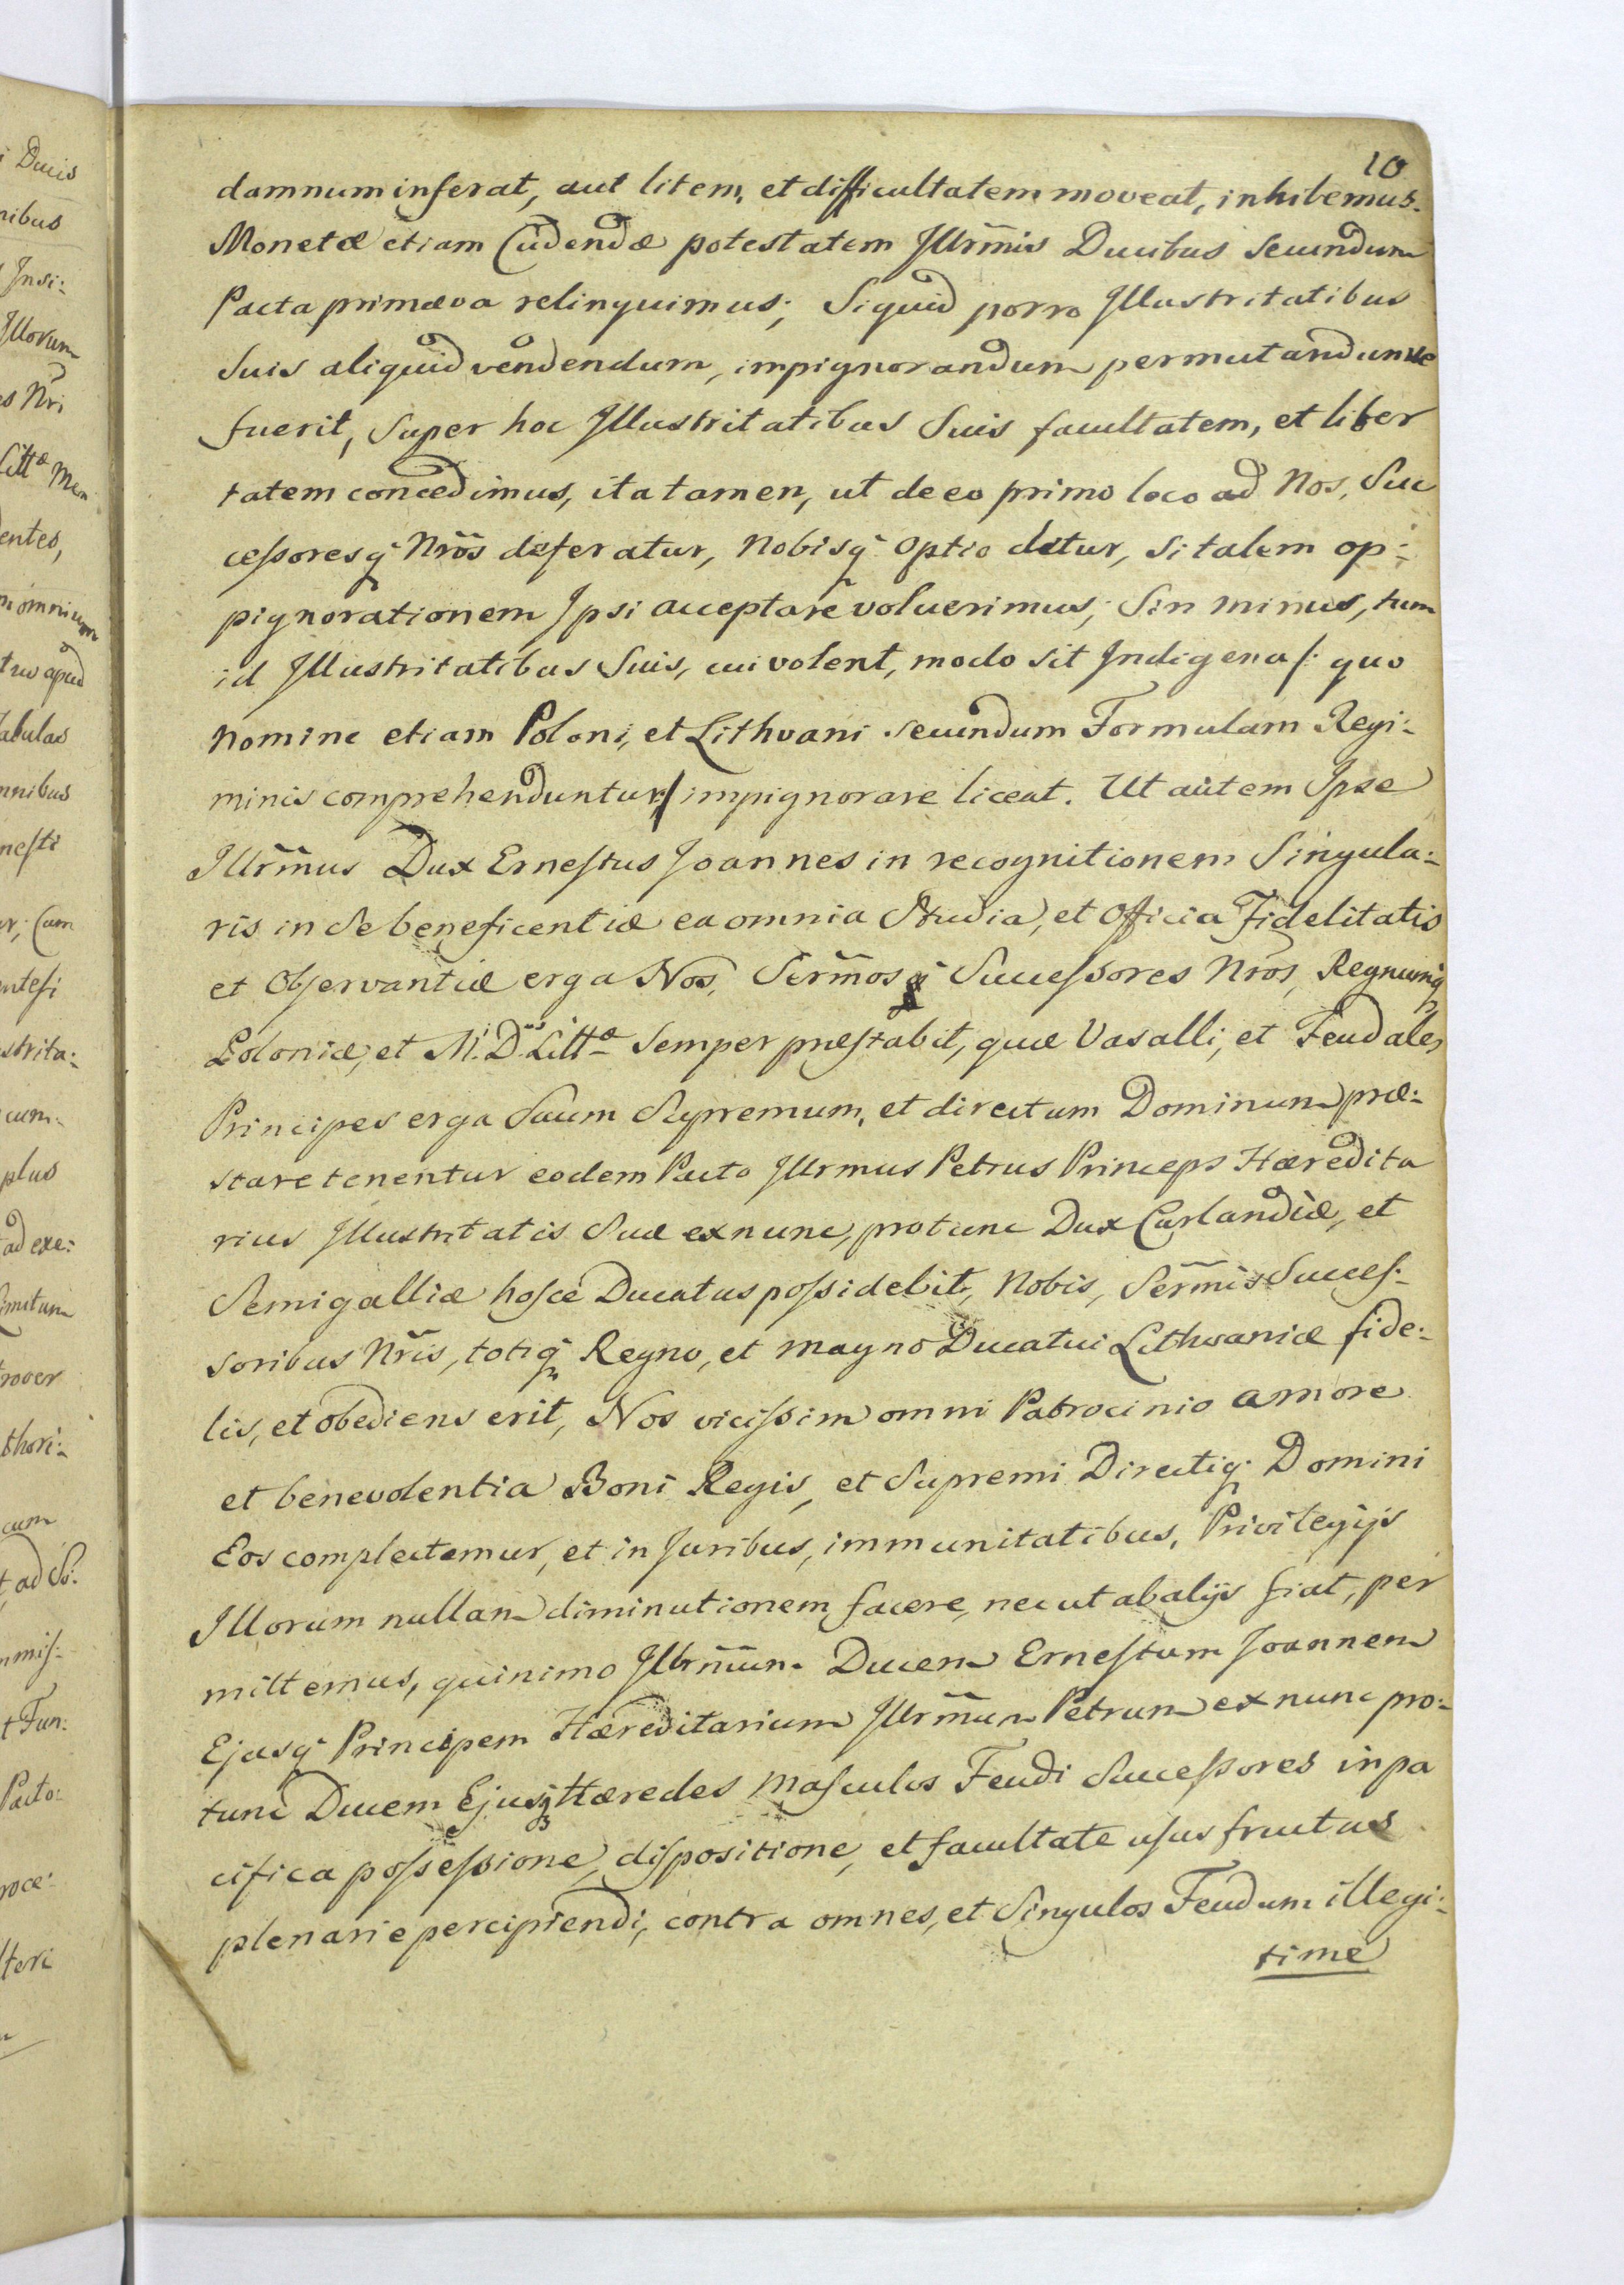 10
damnum inferat, aut litem, et difficultatem moveat, inhibemus.
Monetæ etiam Cudendæ potestatem Illr̃mis Ducibus secundum
Pacta primæva relinquimus; Siquid porro Illustritatibus
Suis aliquid vendendum, impignorandum permutandumve
fuerit, Super hoc Illustritatibus Suis facultatem, et liber
tatem concedimus, ita tamen, ut de eo primo loco ad Nos, Suc
cessoresq̃ Nr̃os deferatur, Nobisq̃ optio detur, Si talem op:
pignorationem Ipsi acceptare voluerimus; Sin minus, tum
id Illustritatibus Suis, cui volent, modo sit Indigena /: quo
Nomine etiam Poloni, et Lithvani secundum Formulam Regi:
minis comprehenduntur :/ impignorare liceat. Ut autem Ipse
Illr̃mus Dux Ernestus Joannes in recognitionem Singula:
ris in Se beneficentiæ ea omnia Studia, et Officia Fidelitatis
et Observantiæ erga Nos, Serm̃osq̃ Successores Nr̃os, Regnumq̃
Poloniæ, et M. D. Littæ Semper præstabit, quæ Vasalli, et Feudales
Principes erga Suum Supremum, et directum Dominum præ:
stare tenentur eodem Pacto Illrmus Petrus Princeps Hæredita
rius Illustritatis Suæ ex nunc, pro tunc Dux Curlandiæ, et
Semigalliæ hosce Ducatus possidebit, Nobis, Serm̃is Succes:
soribus Nr̃is, totiq̃ Regno, et Magno Ducatui Lithvaniæ fide:
lis, et obediens erit, Nos vicissim omni Patrocinio amore
et benevolentia Boni Regis, et Supremi Directiq̃ Domini
Eos complectemur, et in Juribus, immunitatibus, Privilegijs
Illorum nullam diminutionem facere, nec ut ab alijs fiat, per
mittemus, quinimo Illr̃mum Ducem Ernestum Joannem
Ejusq̃ Principem Hæreditarium Illr̃mum Petrum ex nunc pro:
tunc Ducem Ejusq̃ Hæredes Masculos Feudi Successores in pa
cifica possessione, dispositione, et facultate usus fructus
plenarie percipiendi, contra omnes, et Singulos Feudum illegi:
time